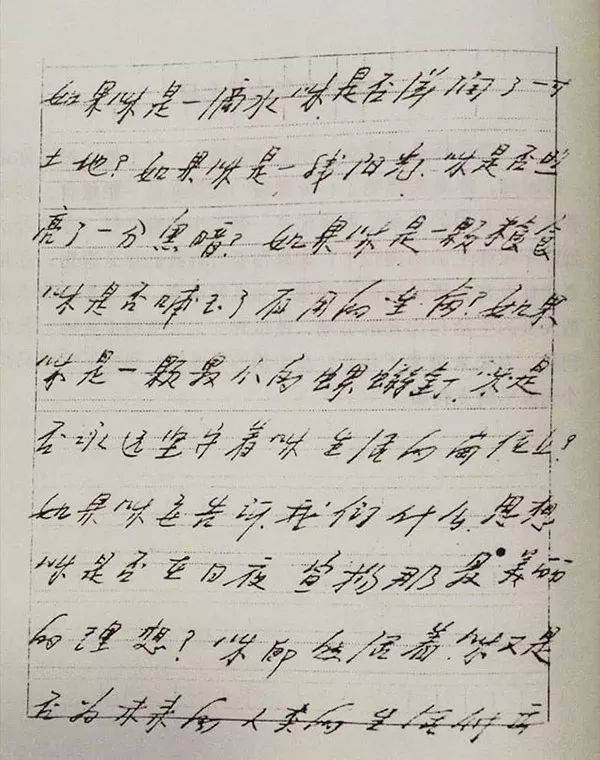 如果你是一滴水你是否滋润了一寸
土地?如果你是一线阳光.你是否照
亮了一分黑暗?如果你是一颗粮食
你是否哺育了有用的生命?如果
你是一颗最小的螺蛳钉.你是
否永远坚守着你生活的岗位上?
如果你要告诉我们什么思想
你是否在日夜宣扬那最美丽
的理想?你即然活着.你又是
否为未来的人类的生活付出